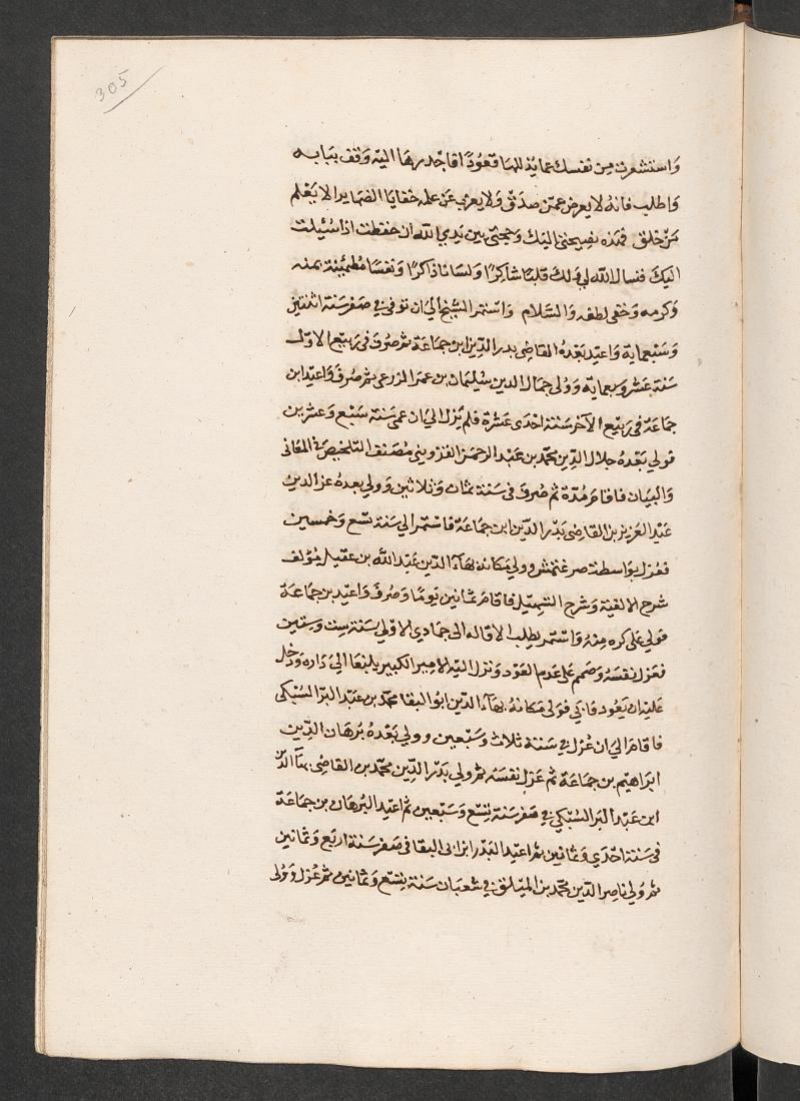 305
واستشعرت من نفسك عما يبذ لها قعودا فاجدر بها اليه وقف ببابه
واطلب فانه لا يعرض عمن صدق ولا يعزب عن علمه خفايا الضماير الا يعلم
من خلق فهذه نصيحتي اليك وحجتي بين يدي الله ان حفظت اذا سئيلت
اليك فنسال الله لي ولك قلبا شاكرا ولسانا ذاكرا ونفسا مطمئينة بمنه
وكرمه وخفى لطفه والسلام واستمر الشيخ الى ان توفي في صفر سنة اثنتين
وسبعماية واعيد بعده القاضي بدر الدين ابن جماعة ثم صرف في ربيع الاول
سنة عشر وسبعماية وولى جمال الدين سليمان بن عمر الزرعي ثم صرف واعيد ابن
جماعة في ربيع الآخر سنة احدى عشرة فلم يزل الى ان عمى سنة سبع وعشرين
فولي بعده جلال الدين محمد بن عبد الرحمن القزويني مصنف التلخيص في المعاني
والبيان فاقام مدة ثم صرف في سنة ثمان وثلاثين وولي بعده عز الدين
عبد العزيز بن القاضي بدر الدين ابن جماعة فاستمر الي سنة تسع وخمسين
فعزل بواسطة صرغتمش وولي مكانه بهاء الدين عبد الله بن عقيل مؤلف
شرح الالفية وشرح التسهيل فاقام ثمانين يوما وصرف واعيد بن جماعة
فولي على كره منه واستمر يطلب الاقاله الى جمادي الاولى سنة ست وستين
فعزل نفسه وصمم على عدم العود ونزل اليه الامير الكبير يلبغا الي داره ودخل
عليه ان يعود فابي فولى مكانه بهاء الدين ابو البقا محمد بن عبد البر السبكي
فاقام الى ان عزل في سنة ثلاث وسبعين وولي بعده برهان الدين
ابراهيم بن جماعة ثم عزل نفسه ثم ولي بدر الدين محمد بن القاضي بهاء الدين
ابن عبد البر السبكي في صفر سنة تسع وسبعين ثم اعيد البرهان بن جماعة
في سنة احدي وثمانين ثم اعيد البدر ابن ابى البقا في صفر سنة اربع وثمانين
ثم ولي ناصر الدين محمد بن الميلق في شعبان سنة تسع وثمانين ثم عزل وولى